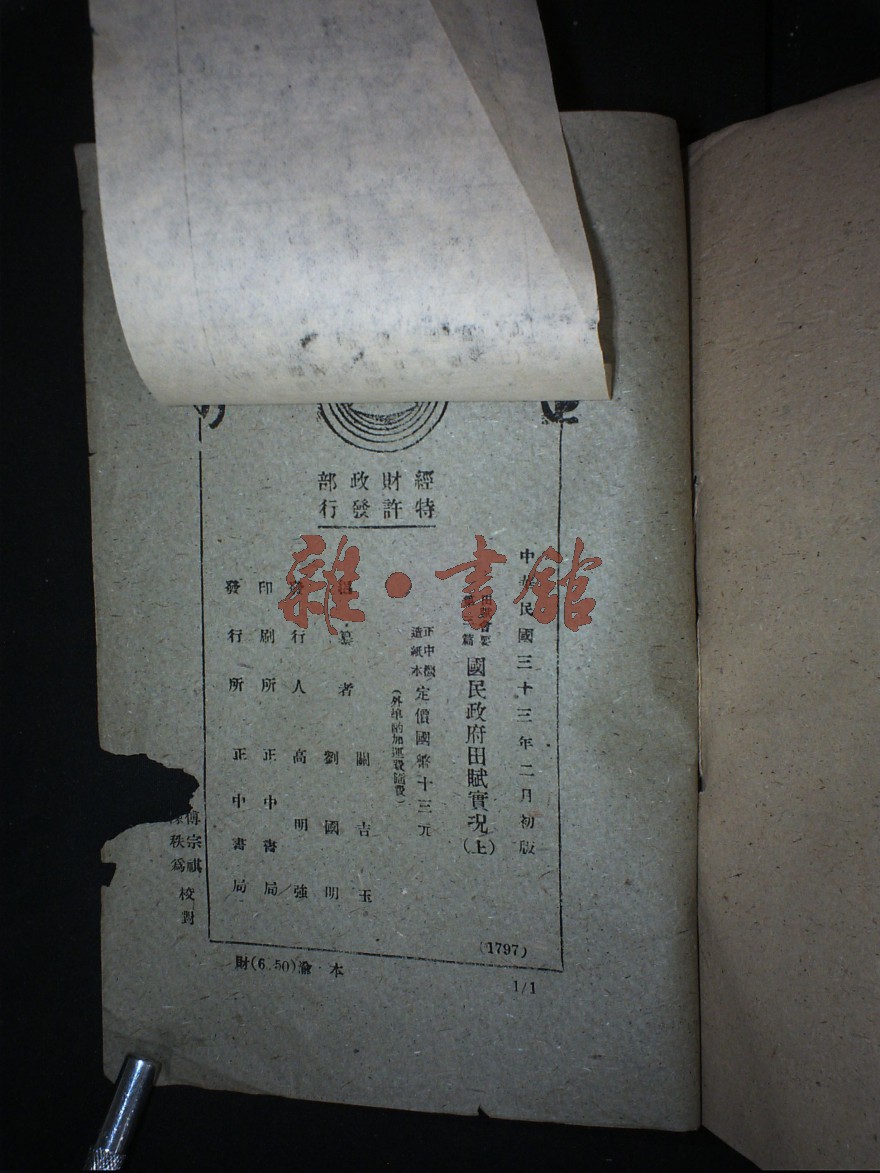 經財政部
特許發行
中華民國三十三年二月初版
國民政府田賦實況(上)
正中機
造紙本
定價國幣十三元
(外埠酌加運費匯費)
編纂者
關吉玉
劉國明
發行人 高明強
印刷所 正中書局
發行所 正中書局
傅宗祺
秩爲
校對
(1797)
財(6.50)渝 本
1/1
雜·書館